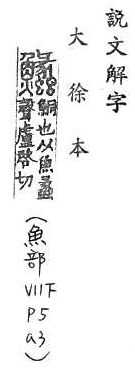 説文解字
大徐本
鮦也从魚蠡
聲盧啓切
(魚部 VII下 P5 a3)